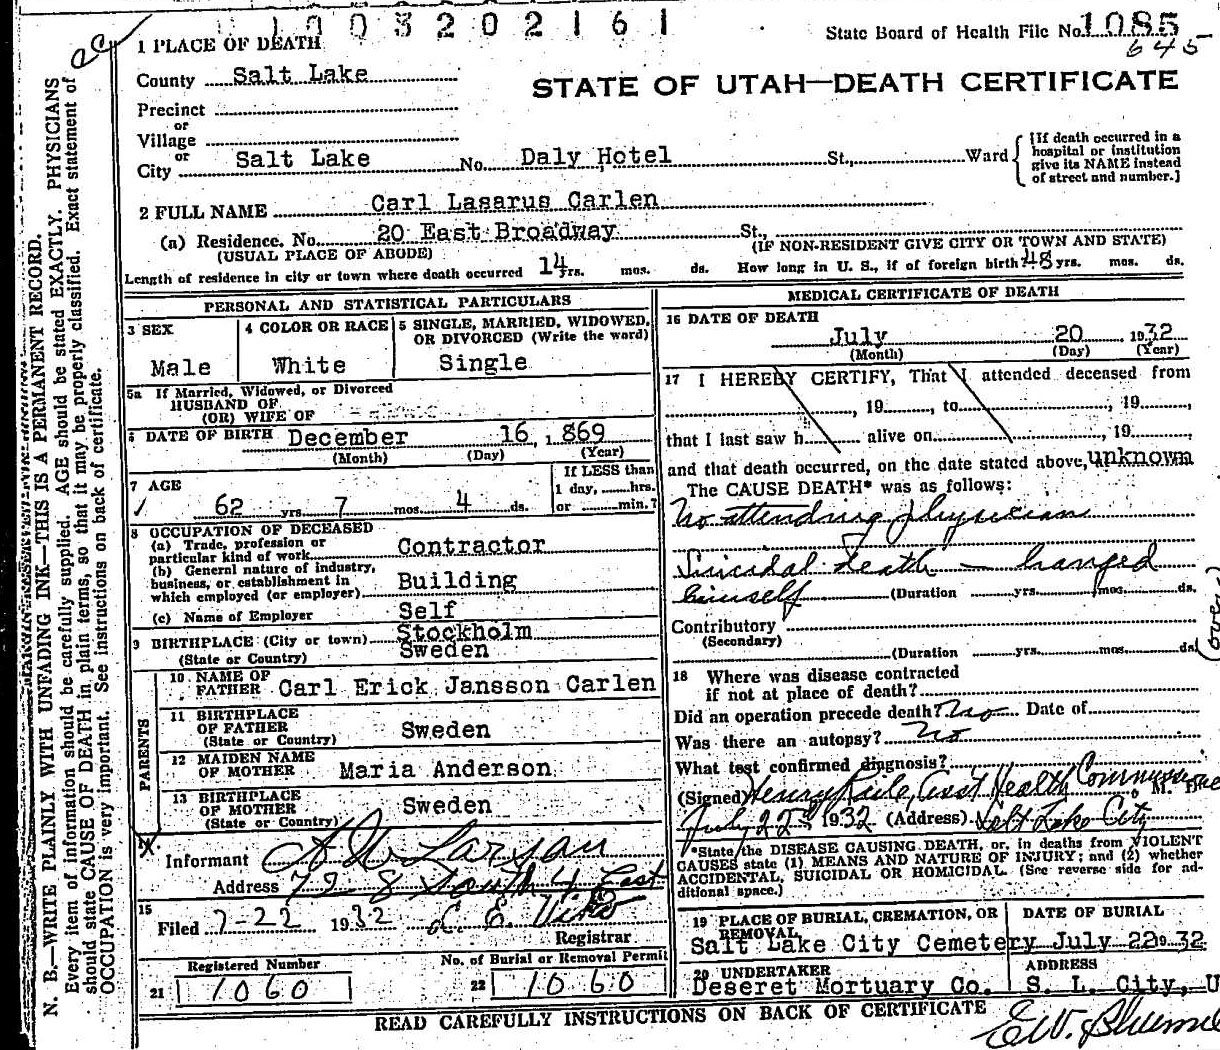 1003202161
State Board of Health File No. 1085
645
1 PLACE OF DEATH
County Salt Lake
STATE OF UTAH—DEATH CERTIFICATE
Precinct
or
Village
or
City Salt Lake No. Daly Hotel St., Ward
[If death occurred in a
hospital or institution
give its NAME instead
of street and number.]
2 FULL NAME Carl Lasarus Carlen
(a) Residence. No. 20 East Broadway St.,
(USUAL PLACE OF ABODE) (IF NON-RESIDENT GIVE CITY OR TOWN AND STATE)
Length of residence in city or town where death occurred 14 yrs. mos. ds. How long in U. S., if of foreign birth 48 yrs. mos. ds.
PERSONAL AND STATISTICAL PARTICULARS
3 SEX
Male
4 COLOR OR RACE
White
5 SINGLE, MARRIED, WIDOWED,
OR DIVORCED (Write the word)
Single
5a If Married, Widowed, or Divorced
HUSBAND OF
(OR) WIFE OF
6 DATE OF BIRTH December 16, 1869
(Month) (Day) (Year)
7 AGE
62 yrs. 7 mos. 4 ds.
If LESS than
1 day, hrs.
or min.?
8 OCCUPATION OF DECEASED
(a) Trade, profession or
particular kind of work Contractor
(b) General nature of industry,
business, or establishment in
which employed (or employer) Building
(c) Name of Employer Self
9 BIRTHPLACE (City or town) Stockholm
(State or Country) Sweden
PARENTS
10 NAME OF
FATHER Carl Erick Jansson Carlen
11 BIRTHPLACE
OF FATHER
(State or Country) Sweden
12 MAIDEN NAME
OF MOTHER Maria Anderson
13 BIRTHPLACE
OF MOTHER
(State or Country) Sweden
14
Informant Larson
Address 728 South 4 East
15
Filed 7-22 1932
Registrar
Registered Number
21 1060
No. of Burial or Removal Permit
22 1060
MEDICAL CERTIFICATE OF DEATH
16 DATE OF DEATH
July 20 1932
(Month) (Day) (Year)
17 I HEREBY CERTIFY, That I attended deceased from
, 19 , to , 19 ,
that I last saw h alive on , 19
and that death occurred, on the date stated above, unknown
The CAUSE DEATH* was as follows:
No attending physician
Suicidal death — hanged
himself (Duration yrs. mos. ds.
Contributory
(Secondary)
(Duration yrs. mos. ds.
(over)
18 Where was disease contracted
if not at place of death?
Did an operation precede death? No Date of
Was there an autopsy? No
What test confirmed diagnosis?
(Signed) Henry Asst Health Commissioner, M. D.
July 22 1932 (Address) Salt Lake City
*State the DISEASE CAUSING DEATH, or, in deaths from VIOLENT
CAUSES state (1) MEANS AND NATURE OF INJURY; and (2) whether
ACCIDENTAL, SUICIDAL OR HOMICIDAL. (See reverse side for ad-
ditional space.)
19 PLACE OF BURIAL, CREMATION, OR
REMOVAL
Salt Lake City Cemetery
DATE OF BURIAL
July 22 1932
20 UNDERTAKER
Deseret Mortuary Co.
ADDRESS
S. L. City, U
READ CAREFULLY INSTRUCTIONS ON BACK OF CERTIFICATE
N. B.—WRITE PLAINLY WITH UNFADING INK—THIS IS A PERMANENT RECORD.
Every item of information should be carefully supplied. AGE should be stated EXACTLY. PHYSICIANS
should state CAUSE OF DEATH in plain terms, so that it may be properly classified. Exact statement of
OCCUPATION is very important. See instructions on back of certificate.